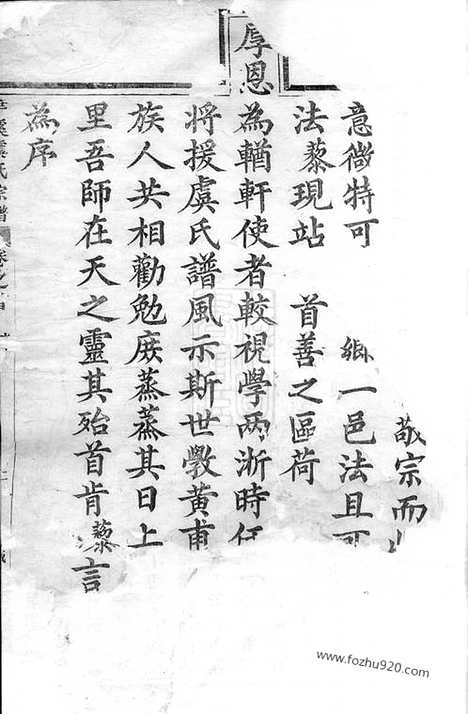 敬宗而
意微特可 鄉一邑法且可
法藜現站 首善之區荷
厚恩
為輶軒使者較視學兩浙時任
將援虞氏譜風示斯世斆黄甫
族人共相勸勉庻蒸蒸其日上
里吾師在天之靈其殆首肯藜言
為序
氏宗譜 卷之首
www.fozhu920.com